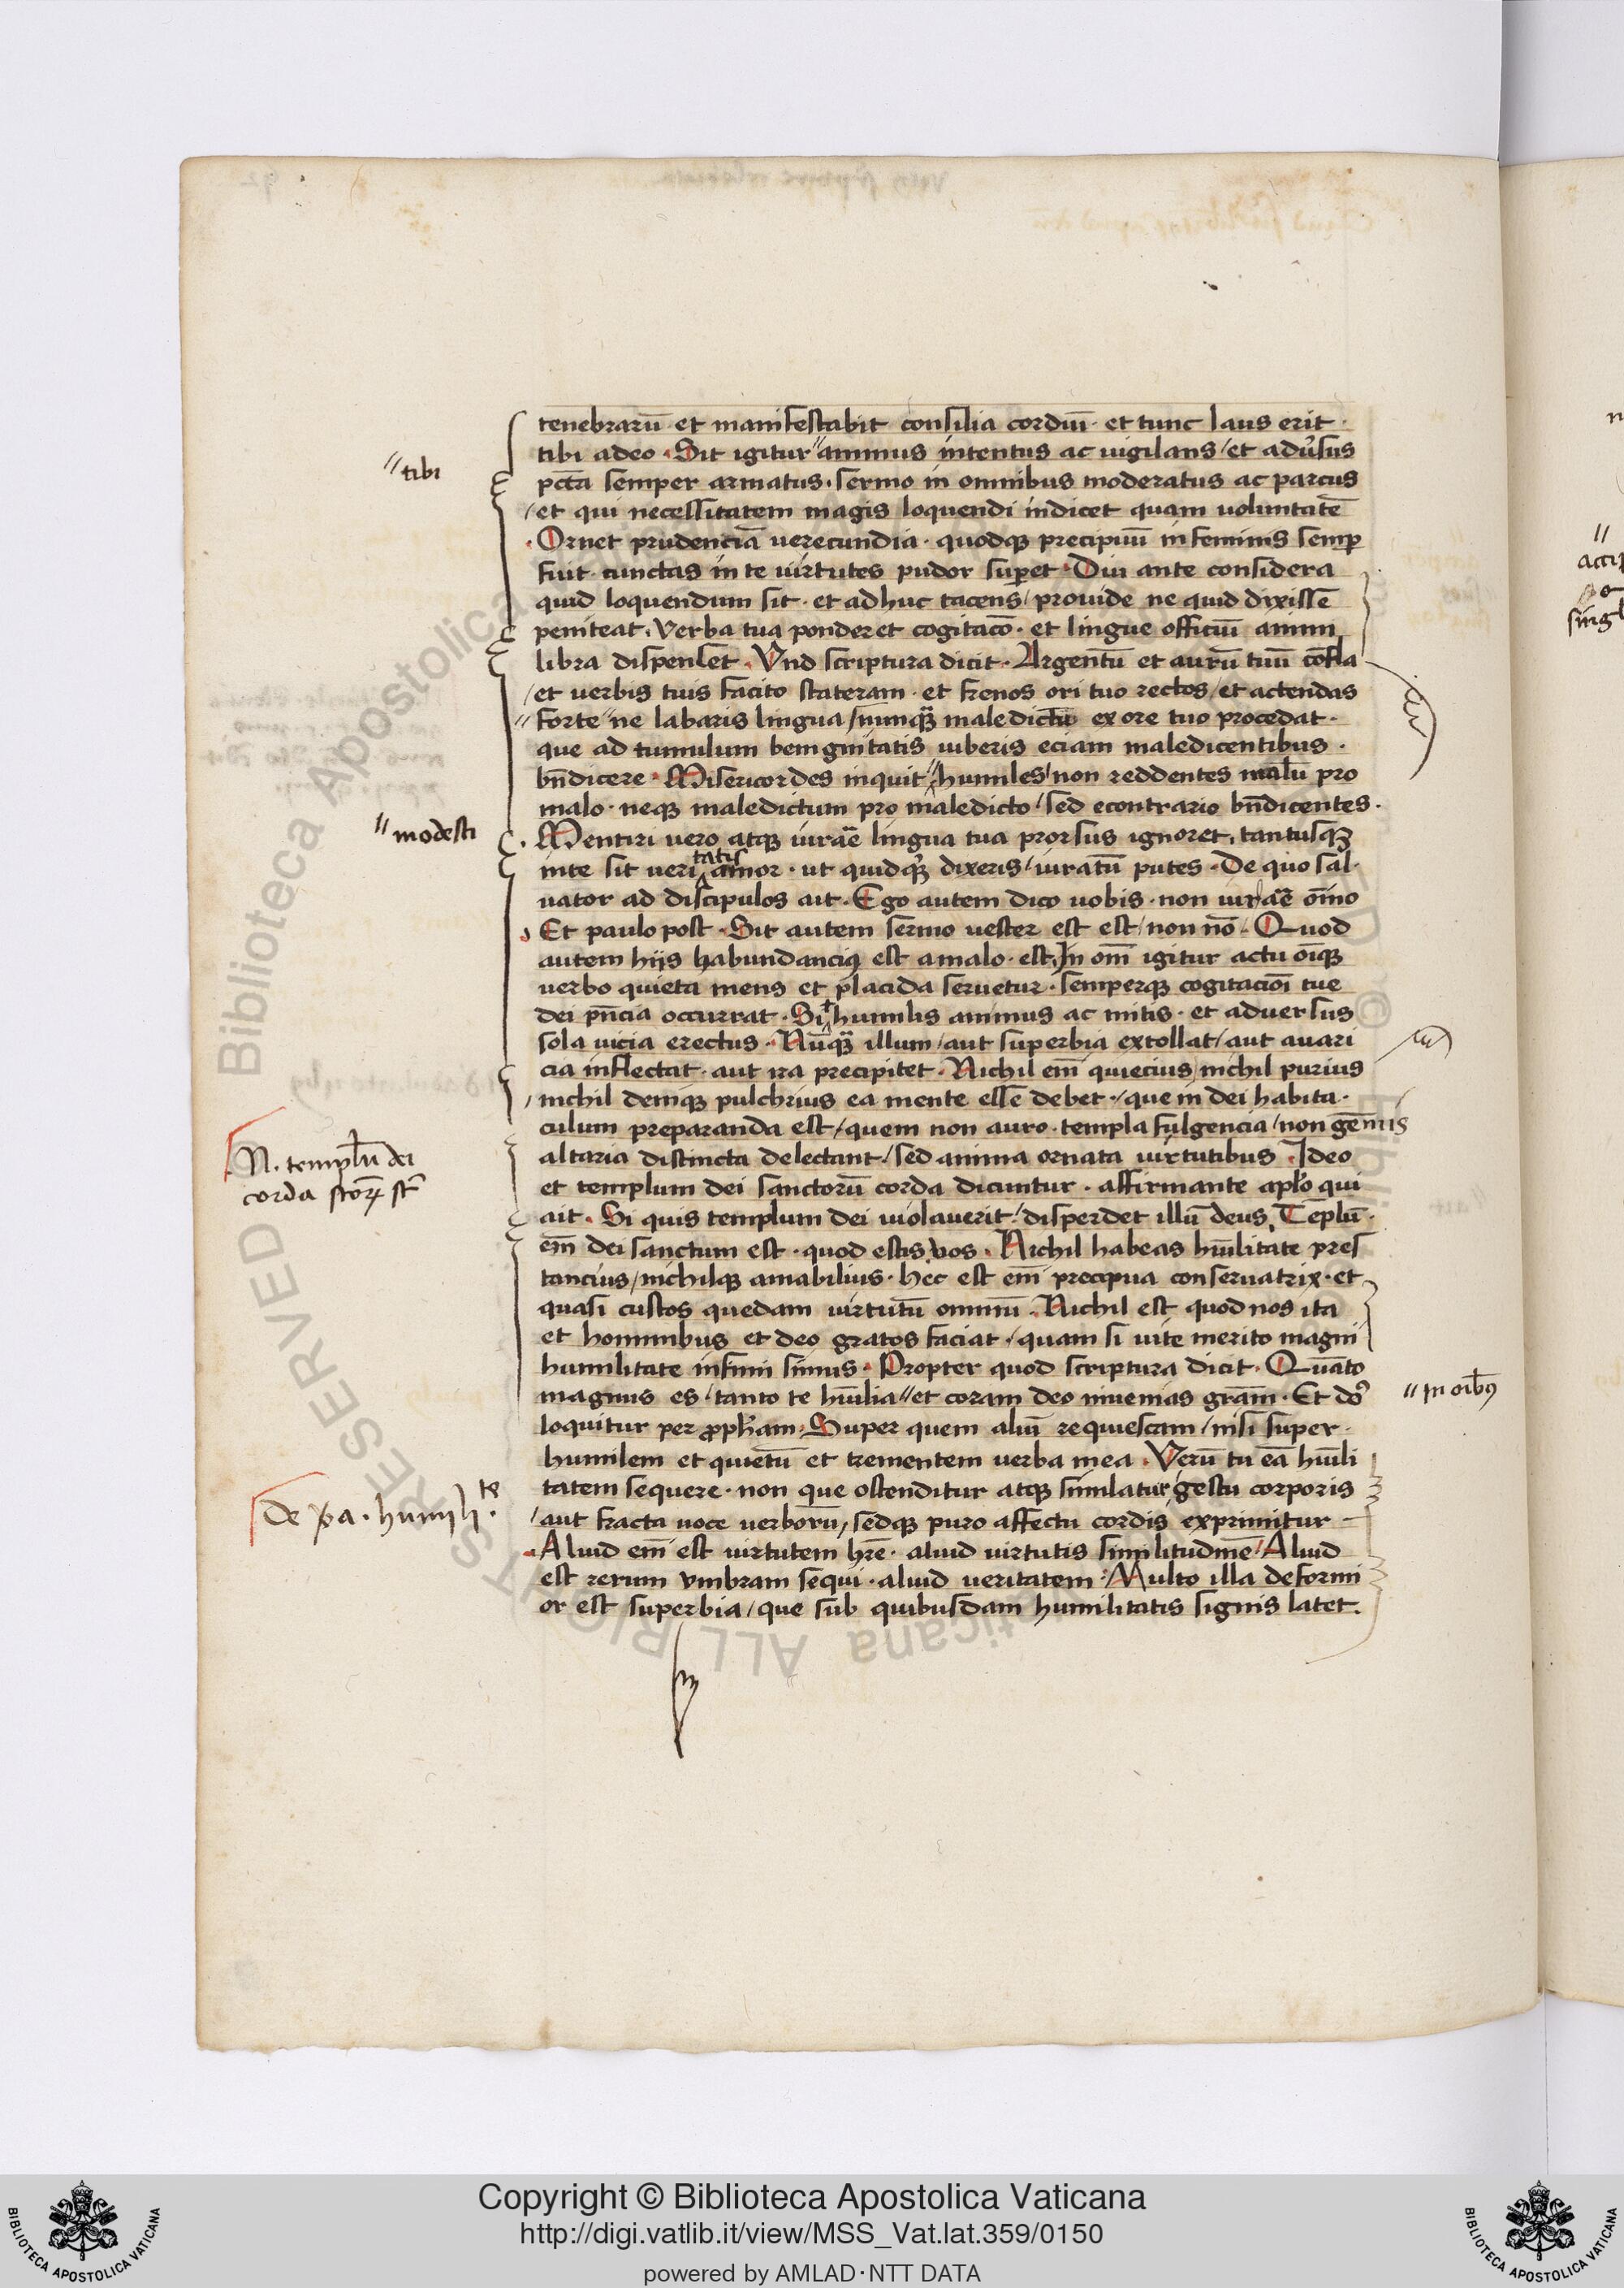 tenebrarū et manifestabit consilia cordiū · et tunc laus erit ·
tibi adeo · Sit igitur〃animus intentus ac uigilans / et adu̓sus
〃tibi
pctā semper armatus · sermo in omnibus moderatus ac parcus
/ et qui necessitatem magis loquendi indicet quam uoluntatē
· Ornet prudenciā uerecundia · quodqꝫ precipuū in feminis semꝑ
fuit · cunctas in te uirtutes pudor suꝑet · Diu ante considera
quid loquendum sit · et adhuc tacens / prouide ne quid dixissē
peniteat · Verba tua ponderet cogitacō · et lingue officiū animi
libra dispenset · Vnd scriptura dicit · Argentū et aurū tuū cōfla
/ et uerbis tuis facito stateram · et frenos ori tuo rectos / et actendas
〃forte〃ne labaris lingua / nūnqꝫ maledictū ex ore tuo procedat ·
que ad tumulum benignitatis iuberis eciam maledicentibus ·
bn̄dicere · Misericordes inquit〃humiles / non reddentes malū pro
malo · neqꝫ maledictum pro maledicto / sed econtrario bn̄dicentes ·
〃modesti
· Mentiri uero atqꝫ iurār̄e lingua tua prorsus ignoret · tantusqꝫ
inte sit ueri tatis amor · ut quidqꝫ dixeris / iuratū putes · De quo sal·
uator ad discipulos ait · Ego autem dico uobis · non iurār̄e oīno
Et paulo post · Sit autem sermo uester est est / non nō · Quod
autem hijs habundanciꝰ est amalo · est In omī igitur actu oīqꝫ
uerbo quieta mens et placida seruetur · semperqꝫ cogitacioī tue
dei pn̄cia occurrat · Si t humilis animus ac mitis · et aduersus
sola uicia erectus · Nūqꝫ illum / aut superbia extollat / aut auari
cia inflectat · aut ira precipitet · Nichil em̄ quiecius / nichil purius
/ nichil deniqꝫ pulchrius ea mente esse debet · / que in dei habita·
culum preparanda est / quem non auro · templa fulgencia / non gēmis
altaria distincta delectant / sed anima ornata uirtutibus · Ideo
N. templū dei
corda sc̄toꝝ st̄
et templum dei sanctorū corda dicuntur · affirmante apl̓o qui
ait · Si quis templum dei uiolauerit / disperdet illū deus Tēplū ·
em̄ dei sanctum est · quod estis vos · Nichil habeas hūilitate pres
tancius / nichilqꝫ amabilius · hec est em̄ precipua conseruatrix · et
quasi custos quedam uirtutū omniū · Nichil est quod nos ita
et hominibus et deo gratos faciat · quam si uite merito magni
humilitate infimi simus · Propter quod scriptura dicit · Quāto
magnus es · tanto te hūilia〃et coram deo inuenias grām · Et dꝰ
〃in oībꝰ
loquitur per ꝓph̄am · Super quem aliū requiescam / nisi super ·
humilem et quietū et trementem uerba mea · Verū tu eā hūili
tatem sequere · non que ostenditur atqꝫ simulatur gestu corporis
de xp̄a · humili · te
/ aut fracta uoce uerborū / sedqꝫ puro affectu cordis exprimitur
· Aliud em̄ est uirtutem hr̄e · aliud uirtutis similitudinē / Aliud
est rerum vmbram sequi · aliud ueritatem · Multo illa deformi
or est superbia / que sub quibusdam humilitatis signis latet.
Copyright © Biblioteca Apostolica Vaticana
http://digi.vatlib.it/view/MSS_Vat.lat.359/0150
powered by AMLAD·NTT DATA